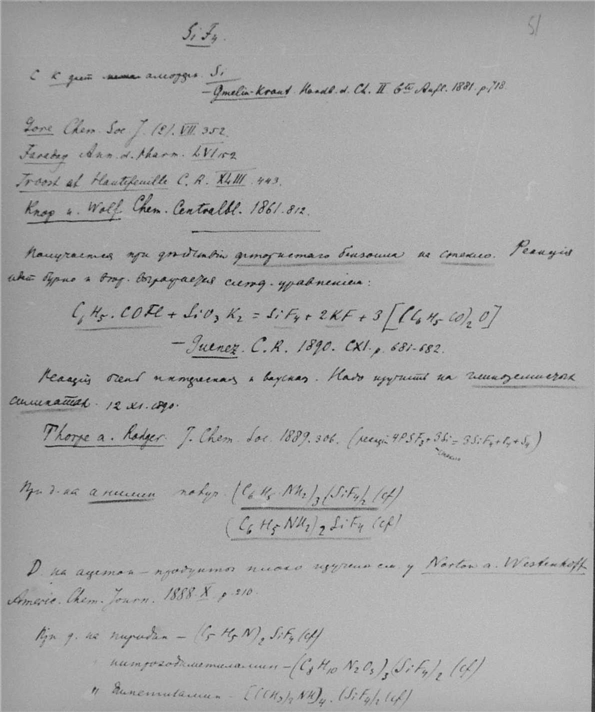 51
SiF4.
С K дает аморфн. Si
– Gmelin-Kraut. Handb. d. Ch. II. 6te Aufl. 1881. p. 718.
Gore Chem. Soc. J. (2). VII. 352.
Faraday Ann. d. Pharm. LVI 152
Troost et Hautefeuille C. R. XLIII. 443.
Knop u. Wolf. Chem. Centralbl. 1861. 812.
Получается при действіи фтористаго бензоила на стекло. Реакція
идет бурно и выражается следд. уравненіем:
C6H5.COFl + SiO3K2 = SiF4 + 2KF + 3[(C6H5CO)2O]
– Guenez. C. R. 1890. CXI. p. 681-682.
Реакція очень интересная и важная. Надо изучить на глиноземистых
силикатах. 12 XI. 1890.
Thorpe a. Rodger. J. Chem. Soc. 1889. 306.
При д. на анилин получ. (C6H5NH2)3(SiF4)2 (cf)
(C6H5NH2)2SiF4 (cf)
Д. на ацетон – продукты плохо изучены см. у Norton a. Westenhoff
Americ. Chem. Journ. 1888. X. p. 210.
При д. на пиридин – (C5H5N)2SiF4 (cf)
нитрозодиметиланилин – (C8H10N2O3)3(SiF4)2 (cf)
диметиламин – ((CH3)2NH)4.(SiF4)2 (cf)